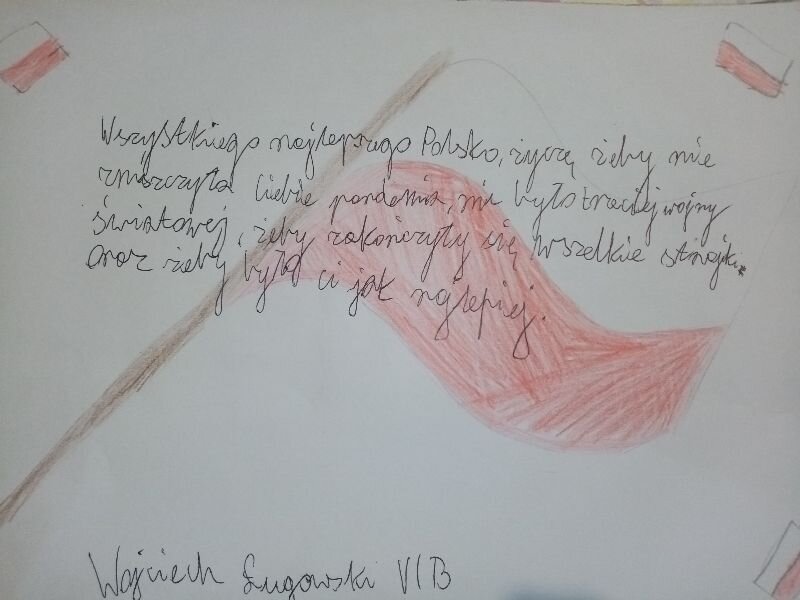 Wszystkiego najlepszego Polsko, życzę żeby nie
zniszczyła Ciebie pandemia, nie było trzeciej wojny
światowej, żeby zakończyły się wszelkie strajki
oraz żeby było ci jak najlepiej.
Wojciech Ługowski VIB